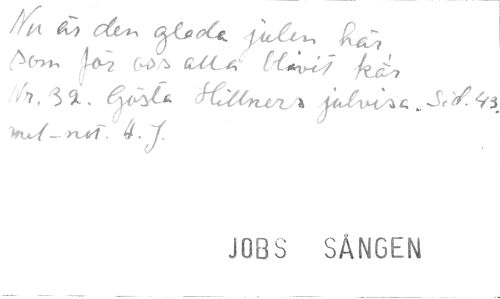 Nu är den glada julen här
Som för oss alla blivit kär
Nr. 32. Gösta Hillners julvisa. Sid. 43.
mel-not. H. J.
JOBS SÅNGEN